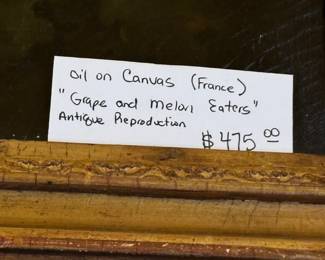 oil on Canvas (France)
"Grape and Melon Eaters"
Antique Reproduction
$475 00